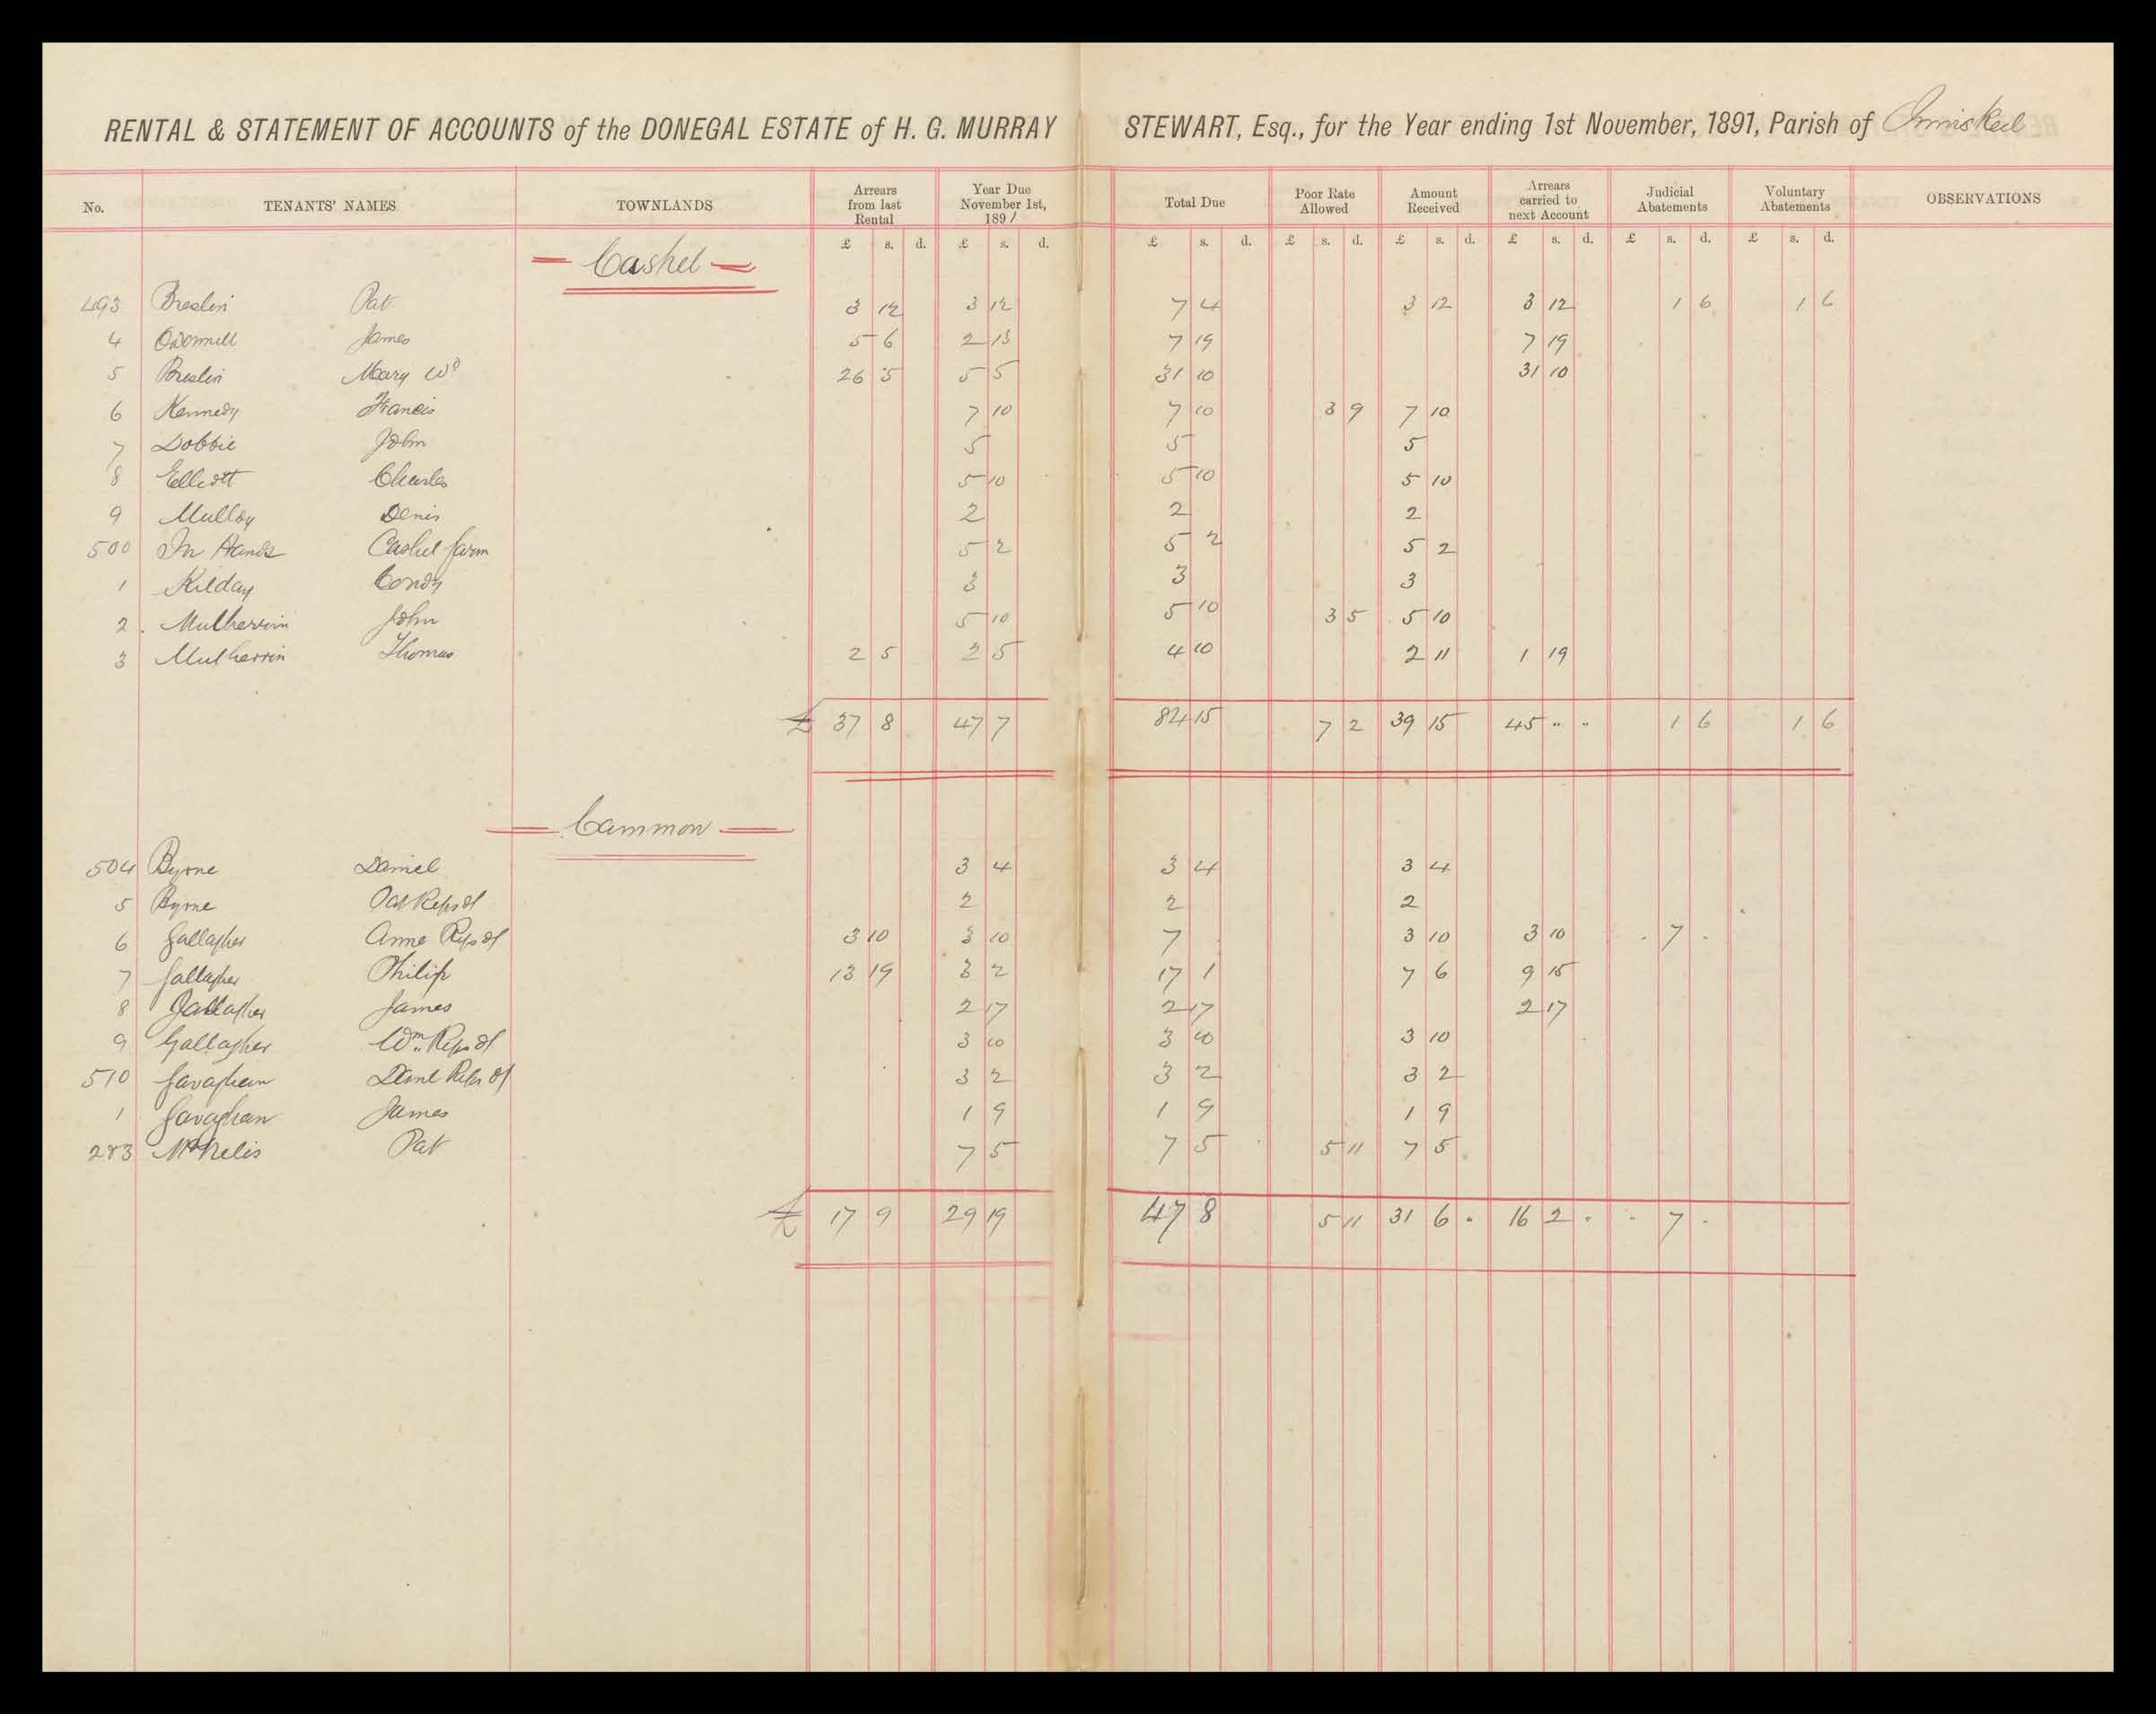 RENTAL & STATEMENT OF ACCOUNTS of the DONEGAL ESTATE of H. G. MURRAY STEWART, Esq., for the Year ending 1st November, 1891, Parish of Inniskeel
No. TENANTS' NAMES TOWNLANDS Arrears from last Rental Year Due November 1st, 1891 Total Due Poor Rate Allowed Amount Received Arrears carried to next Account Judicial Abatements Voluntary Abatements OBSERVATIONS
£ s. d. £ s. d. £ s. d. £ s. d. £ s. d. £ s. d. £ s. d. £ s. d.
Cashel
493 Breslin Pat 3 12 3 12 7 4 3 12 3 12 1 6 1 6
4 O'Donnell James 5 6 2 13 7 19 7 19
5 Breslin Mary Wd 26 5 5 5 31 10 31 10
6 Kennedy Francis 7 10 7 10 3 9 7 10
7 Dobbie John 5 5 5
8 Elliott Charles 5 10 5 10 5 10
9 Mulloy Denis 2 2 2
500 In Hands Cashel farm 5 2 5 2 5 2
1 Kilday Condy 3 3 3
2 Mulherrin John 5 10 5 10 3 5 5 10
3 Mulherrin Thomas 2 5 2 5 4 10 2 11 1 19
£ 37 8 47 7 84 15 7 2 39 15 45 " " 1 6 1 6
Cammon
504 Byrne Daniel 3 4 3 4 3 4
5 Byrne Pat Reps of 2 2 2
6 Gallagher Anne Reps of 3 10 3 10 7 3 10 3 10 . 7 .
7 Gallagher Philip 13 19 3 2 17 1 7 6 9 15
8 Gallagher James 2 17 2 17 2 17
9 Gallagher Wm Reps of 3 10 3 10 3 10
510 Gavaghan Danl Reps of 3 2 3 2 3 2
1 Gavaghan James 1 9 1 9 1 9
283 McNelis Pat 7 5 7 5 5 11 7 5
£ 17 9 29 19 47 8 5 11 31 6 . 16 2 . . 7 .